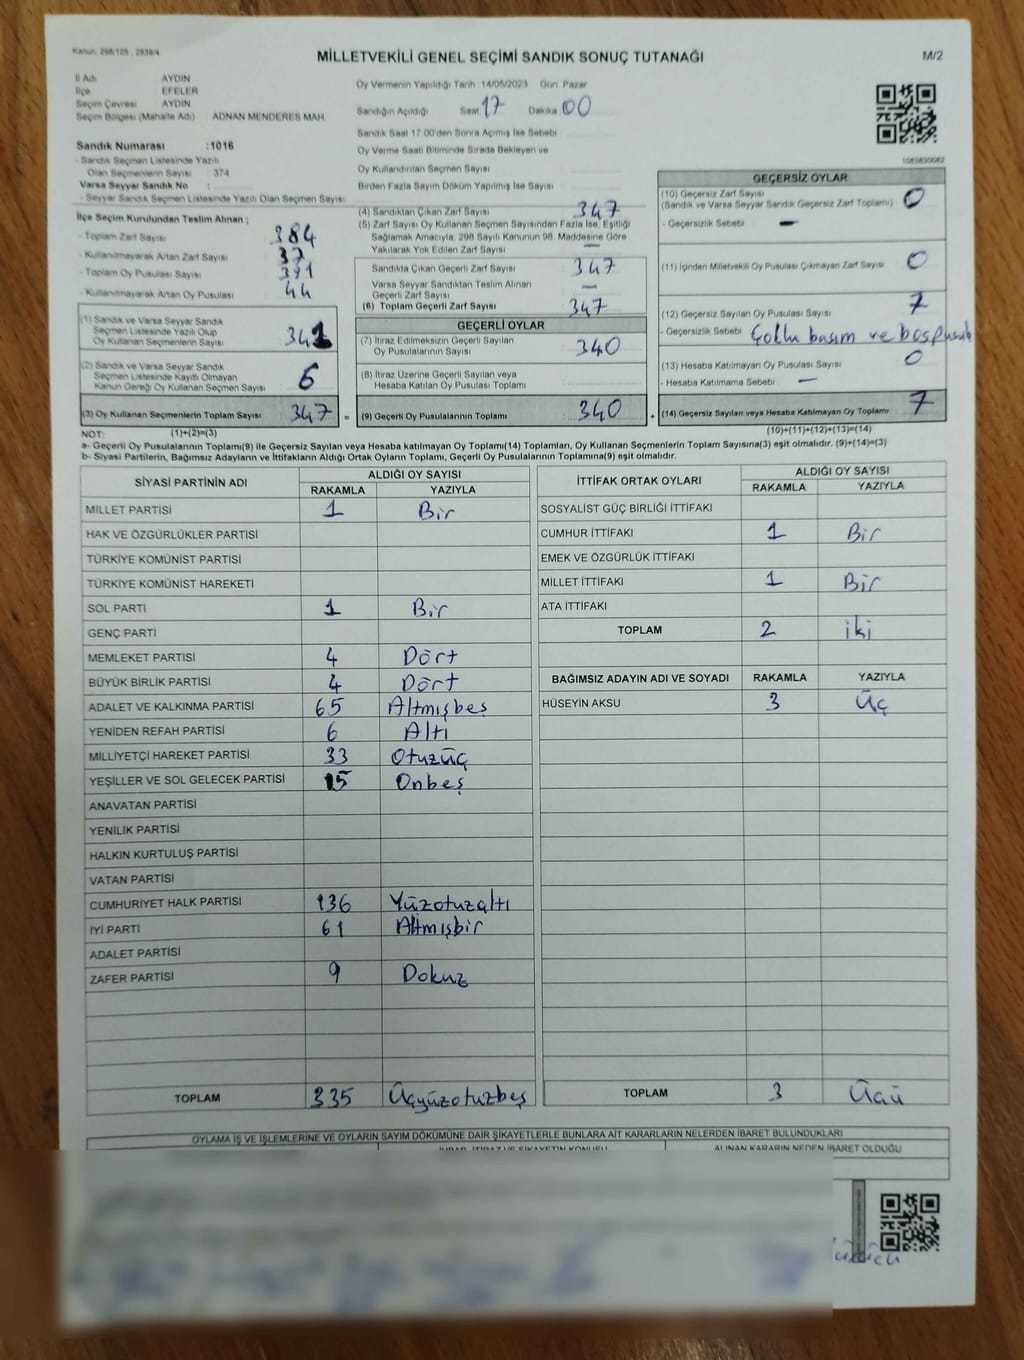 Kanun: 298/105 ; 2839/4
MİLLETVEKİLİ GENEL SEÇİMİ SANDIK SONUÇ TUTANAĞI
M/2
İl Adı AYDIN
İlçe EFELER
Seçim Çevresi AYDIN
Seçim Bölgesi (Mahalle Adı) ADNAN MENDERES MAH.
Sandık Numarası :1016
- Sandık Seçmen Listesinde Yazılı
Olan Seçmenlerin Sayısı 374
Varsa Seyyar Sandık No :
- Seyyar Sandık Seçmen Listesinde Yazılı Olan Seçmen Sayısı
İlçe Seçim Kurulundan Teslim Alınan ;
- Toplam Zarf Sayısı 384
- Kullanılmayarak Artan Zarf Sayısı 37
- Toplam Oy Pusulası Sayısı 391
- Kullanılmayarak Artan Oy Pusulası 44
(1) Sandık ve Varsa Seyyar Sandık
Seçmen Listesinde Yazılı Olup
Oy Kullanan Seçmenlerin Sayısı 341
(2) Sandık ve Varsa Seyyar Sandık
Seçmen Listesinde Kayıtlı Olmayan
Kanun Gereği Oy Kullanan Seçmen Sayısı 6
(3) Oy Kullanan Seçmenlerin Toplam Sayısı 347 =
Oy Vermenin Yapıldığı Tarih 14/05/2023 Gün: Pazar
Sandığın Açıldığı Saat 17 Dakika 00
Sandık Saat 17.00'den Sonra Açılmış İse Sebebi
Oy Verme Saati Bitiminde Sırada Bekleyen ve
Oy Kullandırılan Seçmen Sayısı
Birden Fazla Sayım Döküm Yapılmış İse Sayısı
(4) Sandıktan Çıkan Zarf Sayısı 347
(5) Zarf Sayısı Oy Kullanan Seçmen Sayısından Fazla İse, Eşitliği
Sağlamak Amacıyla, 298 Sayılı Kanunun 98. Maddesine Göre
Yakılarak Yok Edilen Zarf Sayısı —
Sandıkta Çıkan Geçerli Zarf Sayısı 347
Varsa Seyyar Sandıktan Teslim Alınan
Geçerli Zarf Sayısı —
(6) Toplam Geçerli Zarf Sayısı 347
GEÇERLİ OYLAR
(7) İtiraz Edilmeksizin Geçerli Sayılan
Oy Pusulalarının Sayısı 340
(8) İtiraz Üzerine Geçerli Sayılan veya
Hesaba Katılan Oy Pusulası Toplamı
(9) Geçerli Oy Pusulalarının Toplamı 340 +
1083830082
GEÇERSİZ OYLAR
(10) Geçersiz Zarf Sayısı
(Sandık ve Varsa Seyyar Sandık Geçersiz Zarf Toplamı) 0
- Geçersizlik Sebebi —
(11) İçinden Milletvekili Oy Pusulası Çıkmayan Zarf Sayısı 0
(12) Geçersiz Sayılan Oy Pusulası Sayısı 7
- Geçersizlik Sebebi Çoklu basım ve boş pusula
(13) Hesaba Katılmayan Oy Pusulası Sayısı 0
- Hesaba Katılmama Sebebi —
(14) Geçersiz Sayılan veya Hesaba Katılmayan Oy Toplamı 7
NOT: (1)+(2)=(3) (10)+(11)+(12)+(13)=(14)
a- Geçerli Oy Pusulalarının Toplamı(9) ile Geçersiz Sayılan veya Hesaba katılmayan Oy Toplamı(14) Toplamları, Oy Kullanan Seçmenlerin Toplam Sayısına(3) eşit olmalıdır. (9)+(14)=(3)
b- Siyasi Partilerin, Bağımsız Adayların ve İttifakların Aldığı Ortak Oyların Toplamı, Geçerli Oy Pusulalarının Toplamına(9) eşit olmalıdır.
SİYASİ PARTİNİN ADI ALDIĞI OY SAYISI
RAKAMLA YAZIYLA
MİLLET PARTİSİ 1 Bir
HAK VE ÖZGÜRLÜKLER PARTİSİ
TÜRKİYE KOMÜNİST PARTİSİ
TÜRKİYE KOMÜNİST HAREKETİ
SOL PARTİ 1 Bir
GENÇ PARTİ
MEMLEKET PARTİSİ 4 Dört
BÜYÜK BİRLİK PARTİSİ 4 Dört
ADALET VE KALKINMA PARTİSİ 65 Altmışbeş
YENİDEN REFAH PARTİSİ 6 Altı
MİLLİYETÇİ HAREKET PARTİSİ 33 Otuzüç
YEŞİLLER VE SOL GELECEK PARTİSİ 15 Onbeş
ANAVATAN PARTİSİ
YENİLİK PARTİSİ
HALKIN KURTULUŞ PARTİSİ
VATAN PARTİSİ
CUMHURİYET HALK PARTİSİ 136 Yüzotuzaltı
İYİ PARTİ 61 Altmışbir
ADALET PARTİSİ
ZAFER PARTİSİ 9 Dokuz
TOPLAM 335 Üçyüzotuzbeş
İTTİFAK ORTAK OYLARI ALDIĞI OY SAYISI
RAKAMLA YAZIYLA
SOSYALİST GÜÇ BİRLİĞİ İTTİFAKI
CUMHUR İTTİFAKI 1 Bir
EMEK VE ÖZGÜRLÜK İTTİFAKI
MİLLET İTTİFAKI 1 Bir
ATA İTTİFAKI
TOPLAM 2 iki
BAĞIMSIZ ADAYIN ADI VE SOYADI RAKAMLA YAZIYLA
HÜSEYİN AKSU 3 Üç
TOPLAM 3
OYLAMA İŞ VE İŞLEMLERİNE VE OYLARIN SAYIM DÖKÜMÜNE DAİR ŞİKAYETLERLE BUNLARA AİT KARARLARIN NELERDEN İBARET BULUNDUKLARI
İHBAR, İTİRAZ VE ŞİKAYETİN KONUSU ALINAN KARARIN NEDEN İBARET OLDUĞU